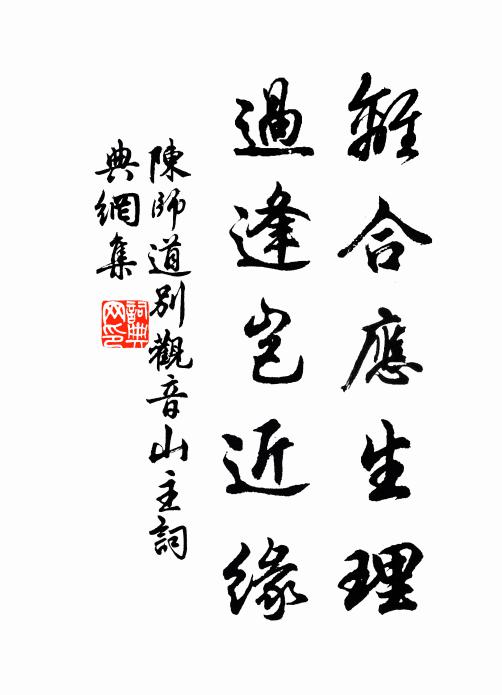 離合應生理
過逢豈近緣
陳師道別觀音山主詞
典網集
詞典
网印